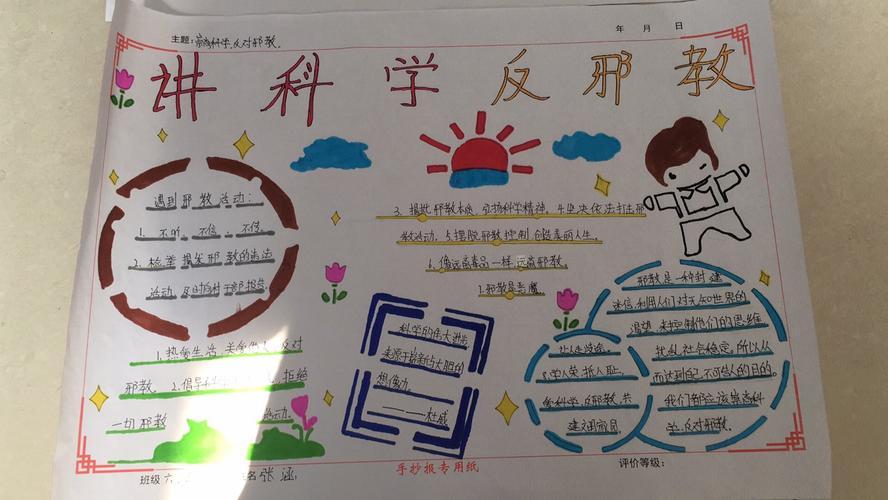 主题：崇尚科学,反对邪教.
年 月 日
讲科学反邪教
遇到邪教活动：
1. 不听、不信、不传。
2. 检举揭发邪教的违法
活动，及时向村干部报告。
3. 揭批邪教本质，弘扬科学精神，4.坚决依法打击邪
教活动，5.摆脱邪教控制创造美丽人生。
6.像远离毒品一样,远离邪教。
7.邪教是恶魔
1.热爱生活，关爱他人，反对
邪教。2.倡导科学 拒绝
一切邪教 活动.
科学的伟大进步
来源于崭新与大胆的
想像力
——杜威
邪教是一种封建
迷信,利用人们对无知世界的
渴望，来控制他们的思维
扰乱社会稳定，所以从
而达到自己不可告人的目的。
我们都应该崇尚科
学，反对邪教。
崇科学，反邪教，共
建文明
班级 六
姓名 张涵
手抄报专用纸
评价等级：